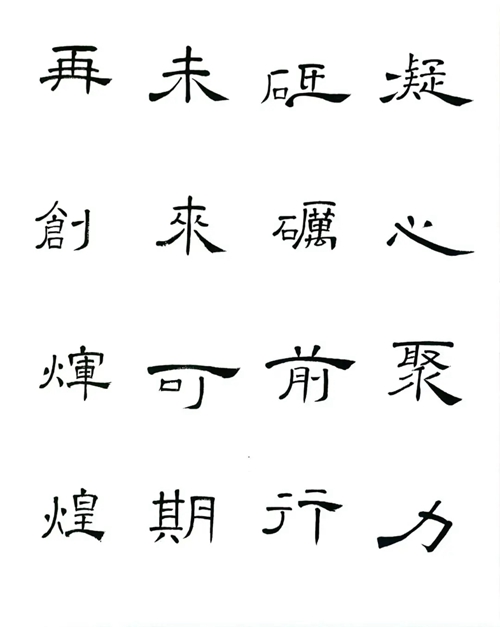 凝心聚力
砥礪前行
未來可期
再創煇煌